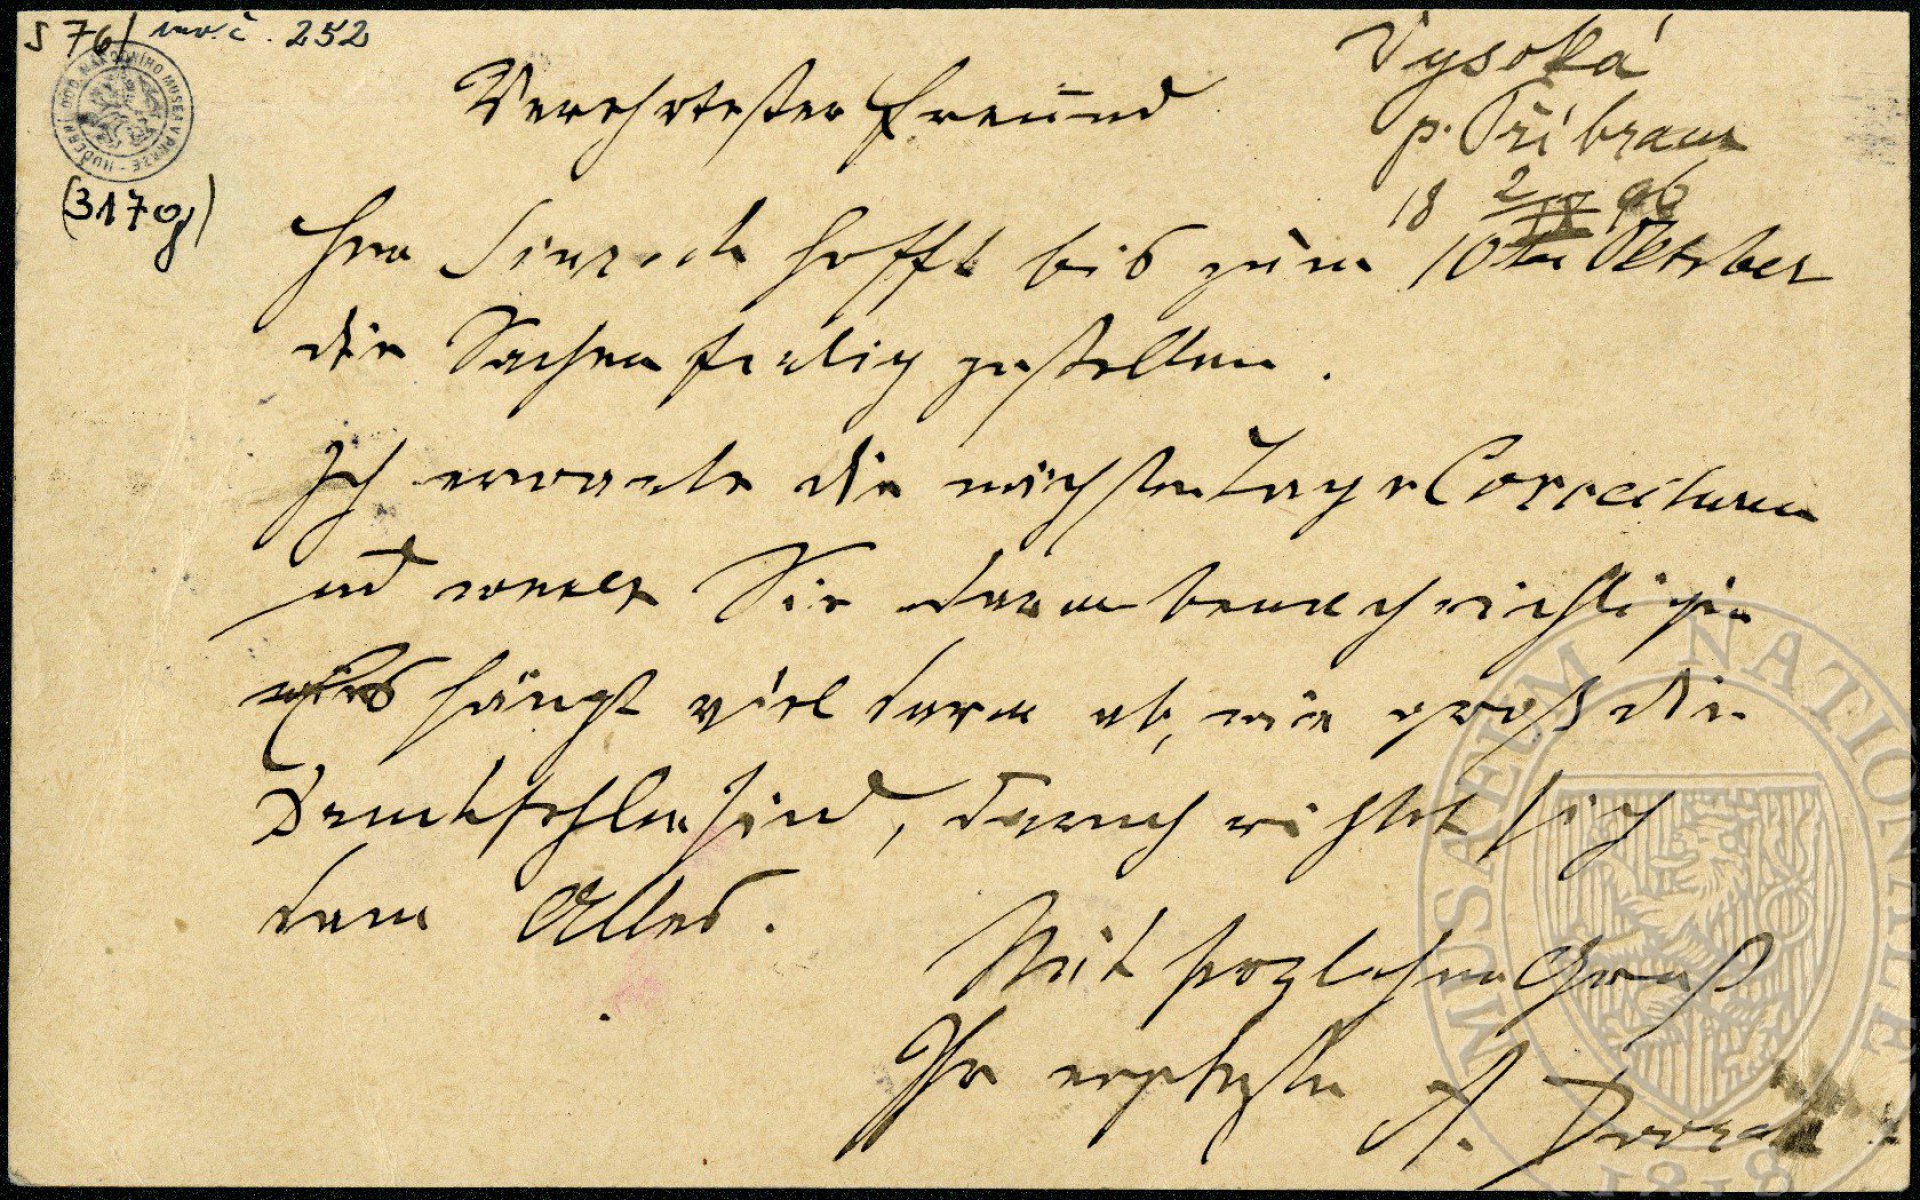 S 76/ inv. č. 252
HUDEBNÍ ODD. NÁRODNÍHO MUSEA V PRAZE
(3170g)
Vysoká
p. Příbram
18 2/IX 96
Verehrtester Freund
Herr Simrock hofft bis zum 10ten Oktober
die Sachen fertig zustellen.
Ich erwarte die nächsten Tage Correcturen
und werde Sie dann benachrichtigen
Es hängt viel davon ab, wie groß die
Druckfehler sind, darnach richtet sich
dann Alles.
Mit herzlichem Gruß
Ihr ergebenster
A. Dvorak
MUSAEUM NATIONALE
1818